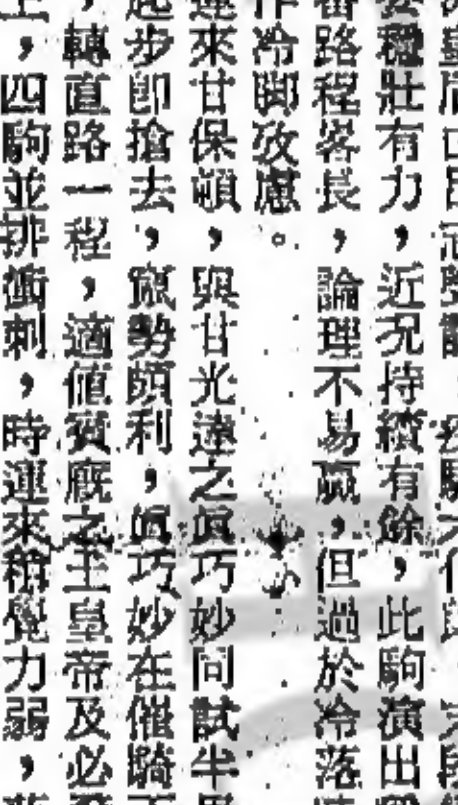 要穩壯有力，近況持續有餘，此駒演出
番路程畧長，論理不易贏，但過於冷落
作冷脚攷慮。
運來甘保頓，與甘光達之眞巧妙同試半
起步即搶去，嬴勢頗利，眞巧妙在催騎
，轉直路一程，適値賀廐之王皇帝及必
上，四駒並排衝刺，時運來稍覺力弱，